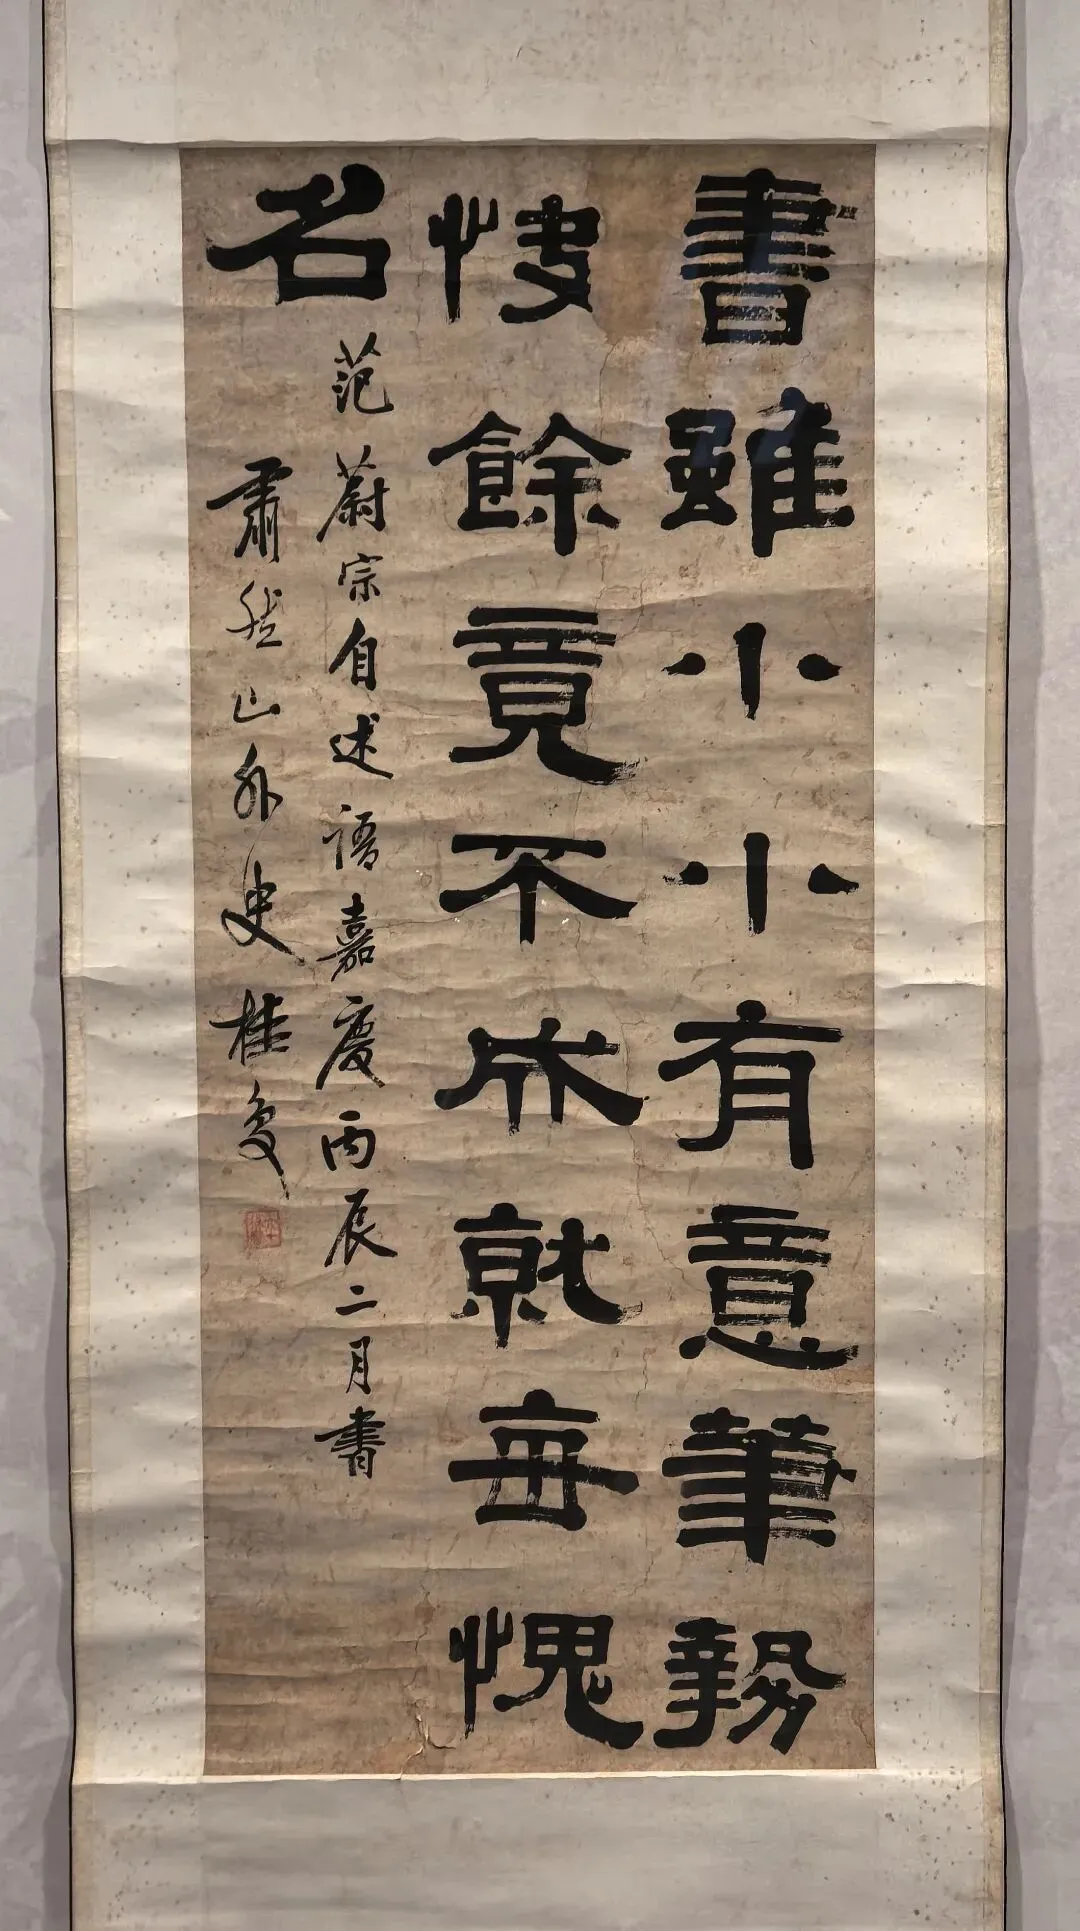 書雖小小有意筆勢
快餘竟不成就每愧
名
范蔚宗自述語嘉慶丙辰二月書
肅然山外史桂复